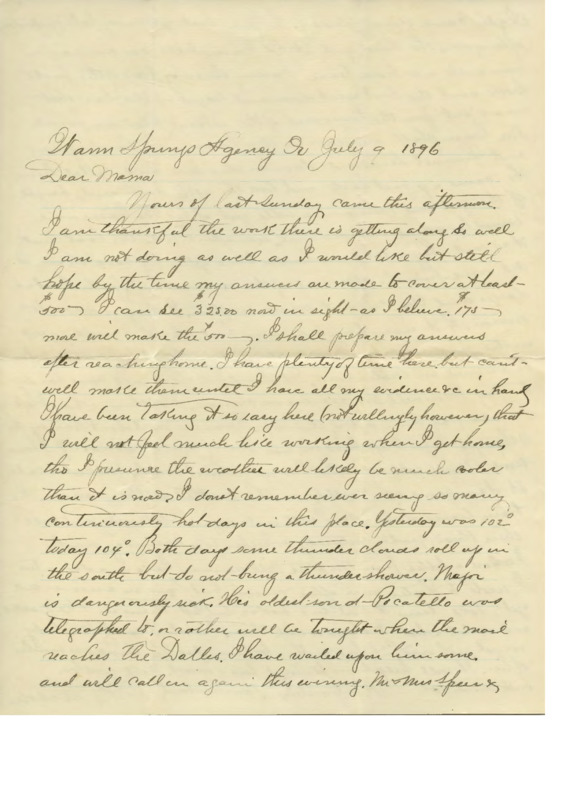 Warm Springs Agency Or July 9 1896
Dear Mama
Yours of last Sunday came this afternoon.
I am thankful the work there is getting along so well
I am not doing as well as I would like but still
hope by the time my answers are made to cover at least
$500— I can see $325.00 now in sight - as I believe. $175—
more will make the $500—. I shall prepare my answers
after reaching home. I have plenty of time here but can't
well make them until I have all my evidence &c in hand
I have been taking it so easy here (not willingly however) that
I will not feel much like working when I get home,
tho I presume the weather will likely be much cooler
than it is now. I don't remember ever seeing so many
continuously hot days in this place. Yesterday was 102°
today 104°. Both days some thunder clouds roll up in
the south but do not bring a thunder shower. Major
is dangerously sick. His oldest son at Pocatello was
telegraphed to, or rather will be tonight when the mail
reaches the Dalles. I have waited upon him some.
and will call in again this evening. Mr & Mrs Speer &